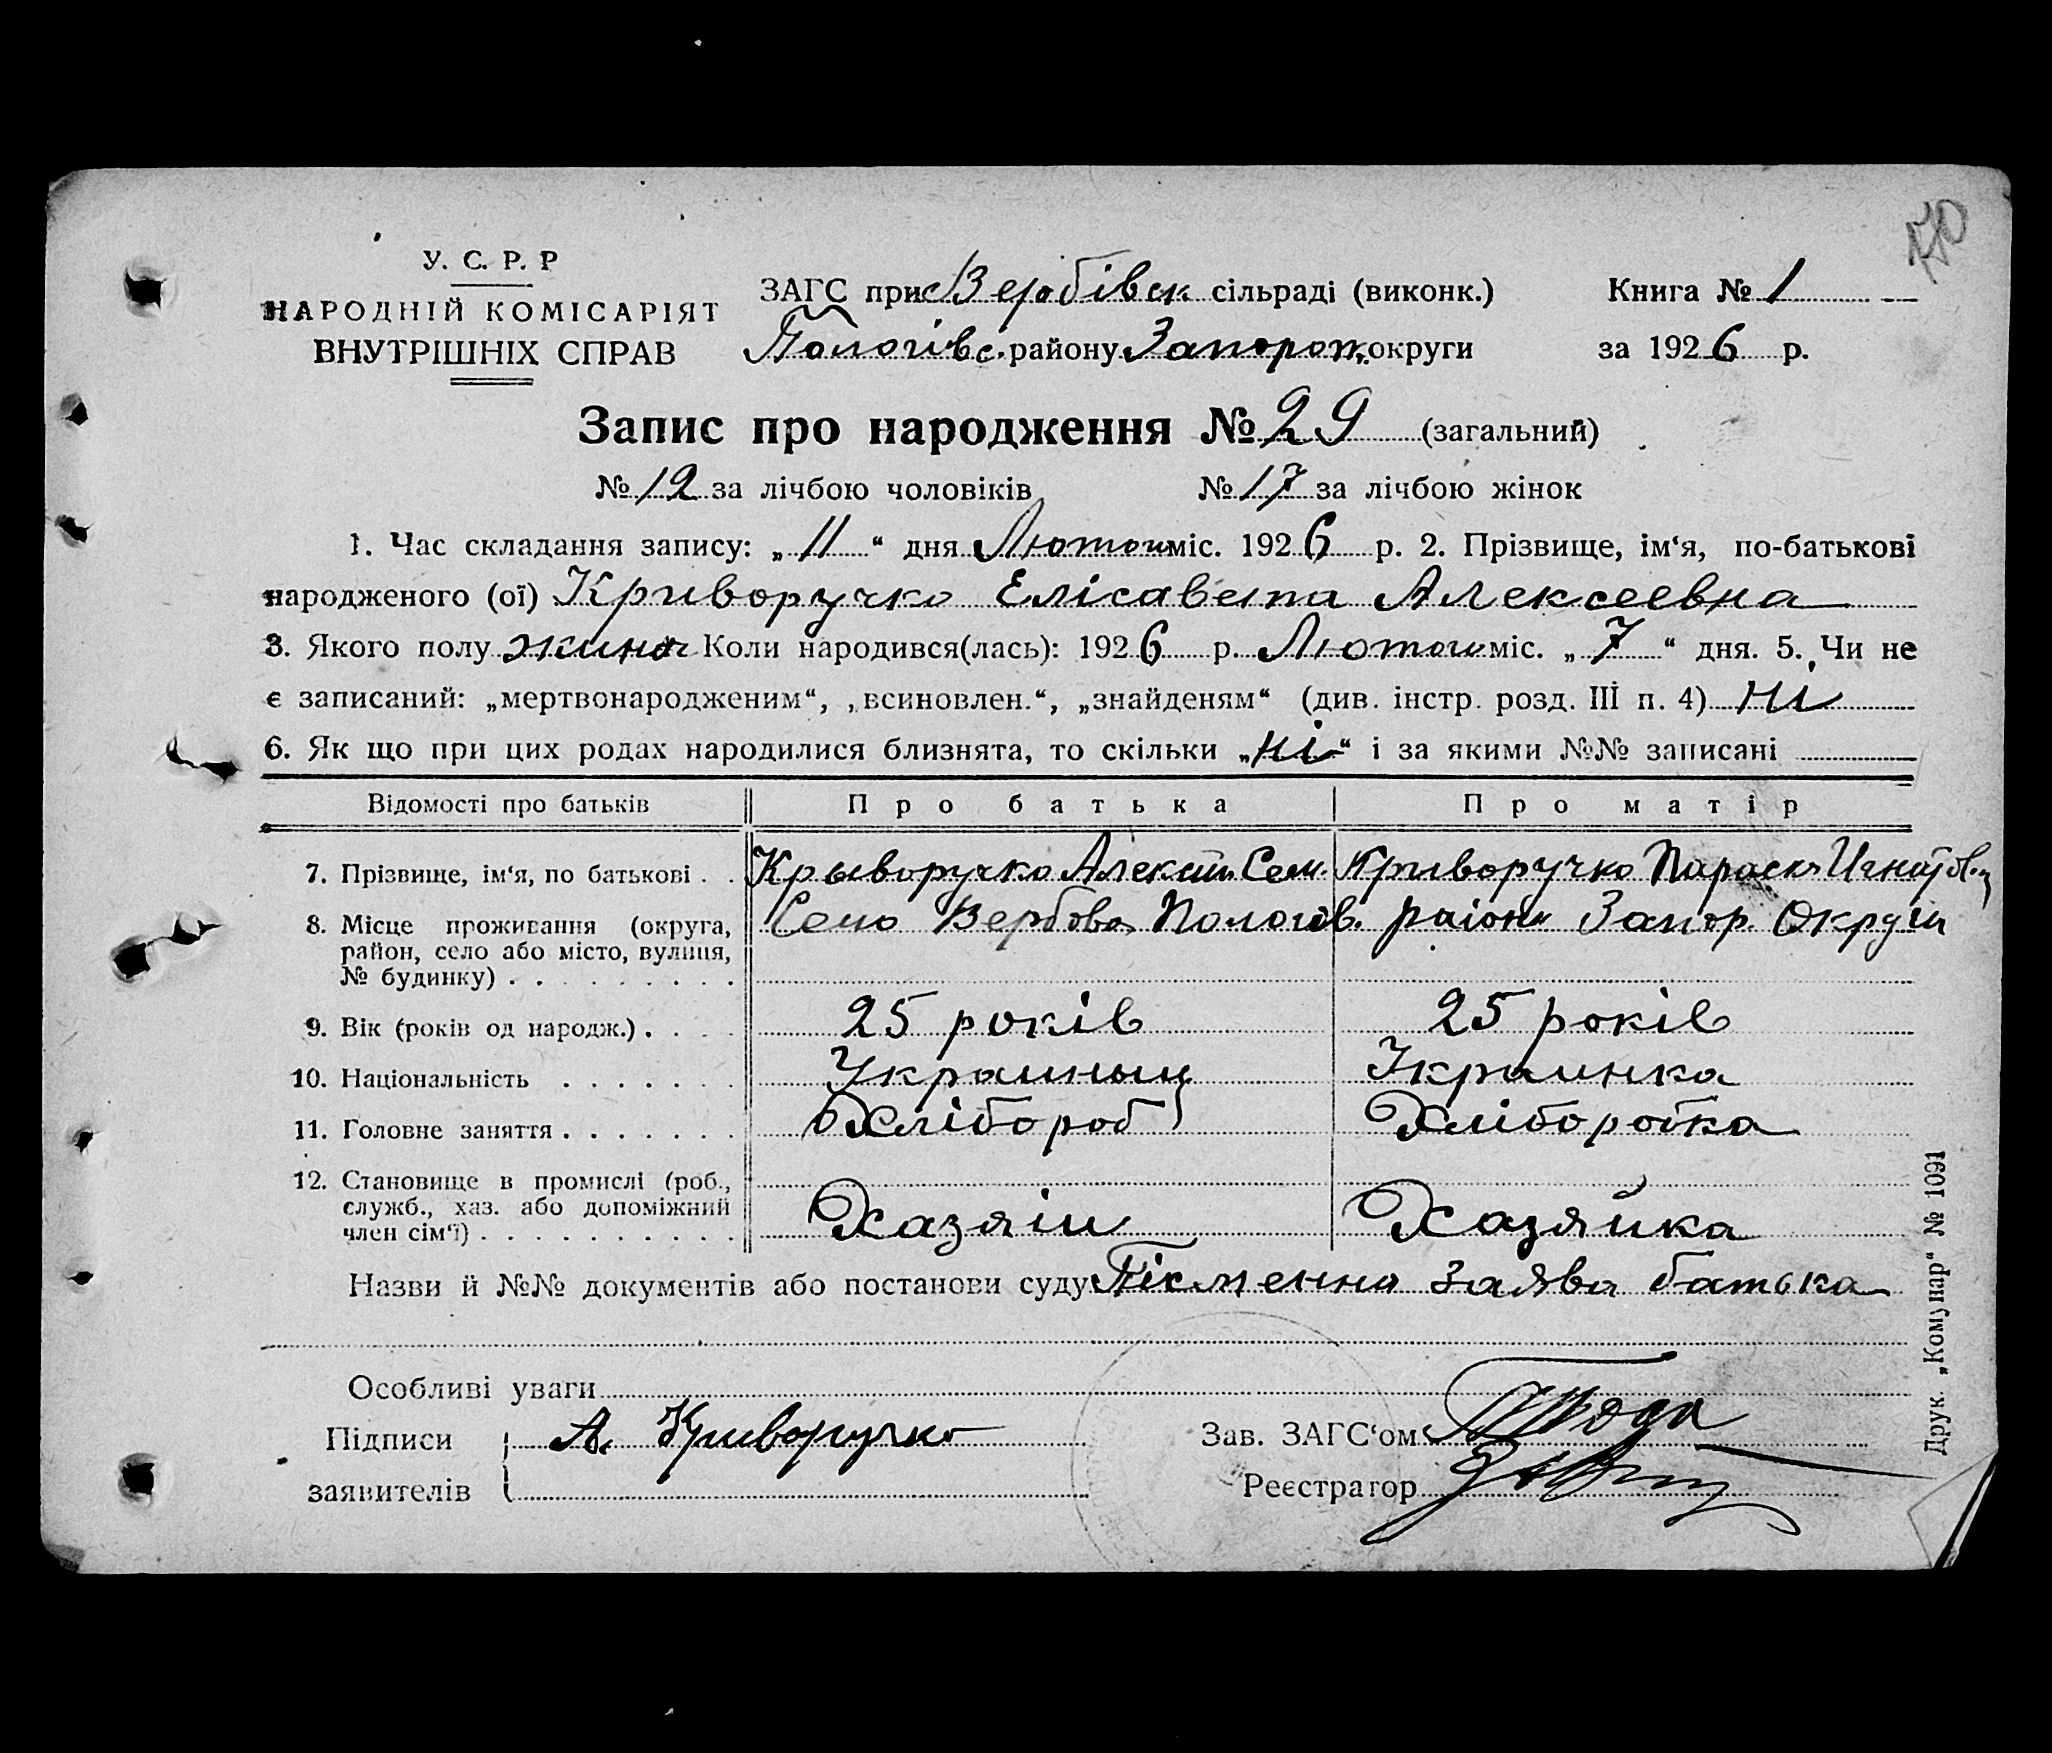 170
У. С. Р. Р
НАРОДНІЙ КОМІСАРІЯТ
ВНУТРІШНІХ СПРАВ
ЗАГС при Вербівск сільраді (виконк.)
Пологівс. району Запорож. округи
Книга № 1
за 1926 р.
Запис про народження № 29 (загальний)
№ 12 за лічбою чоловіків № 17 за лічбою жінок
1. Час складання запису: „11“ дня Лютого міс. 1926 р. 2. Прізвище, ім‘я, по-батькові
народженого (ої) Криворучко Елісавета Алексеевна
3. Якого полу жиноч Коли народився(лась): 1926 р. Лютого міс. „7“ дня. 5. Чи не
є записаний: „мертвонародженим“, „всиновлен.“, „знайденям“ (див. інстр. розд. III п. 4) ні
6. Як що при цих родах народилися близнята, то скільки „ні“ і за якими №№ записані
Відомості про батьків Про батька Про матір
7. Прізвище, ім‘я, по батькові . . Крыворучко Алексій Сем. Криворучко Параскя Игнатов.
8. Місце проживання (округа, район, село або місто, вулиця, № будинку) . . . . . . . . . Село Вербова Пологів. району Запор. Округи
9. Вік (років од народж.) . . . . 25 років 25 років
10. Національність . . . . . . . Украиныц Украинка
11. Головне заняття . . . . . . . Хлібороб Хліборобка
12. Становище в промислі (роб., служб., хаз. або допоміжний член сім‘ї) . . . . . . . . . . . Хазяін Хазяйка
Назви й №№ документів або постанови суду Пісменна заява батька
Особливі уваги
Підписи заявителів А. Криворучко
Зав. ЗАГС‘ом
Реєстратор
Друк. „Комунар“ № 1091